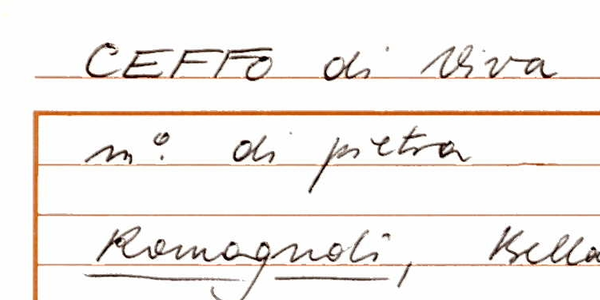 CEFFO di Viva
mº. di pietra
Romagnoli, Bella